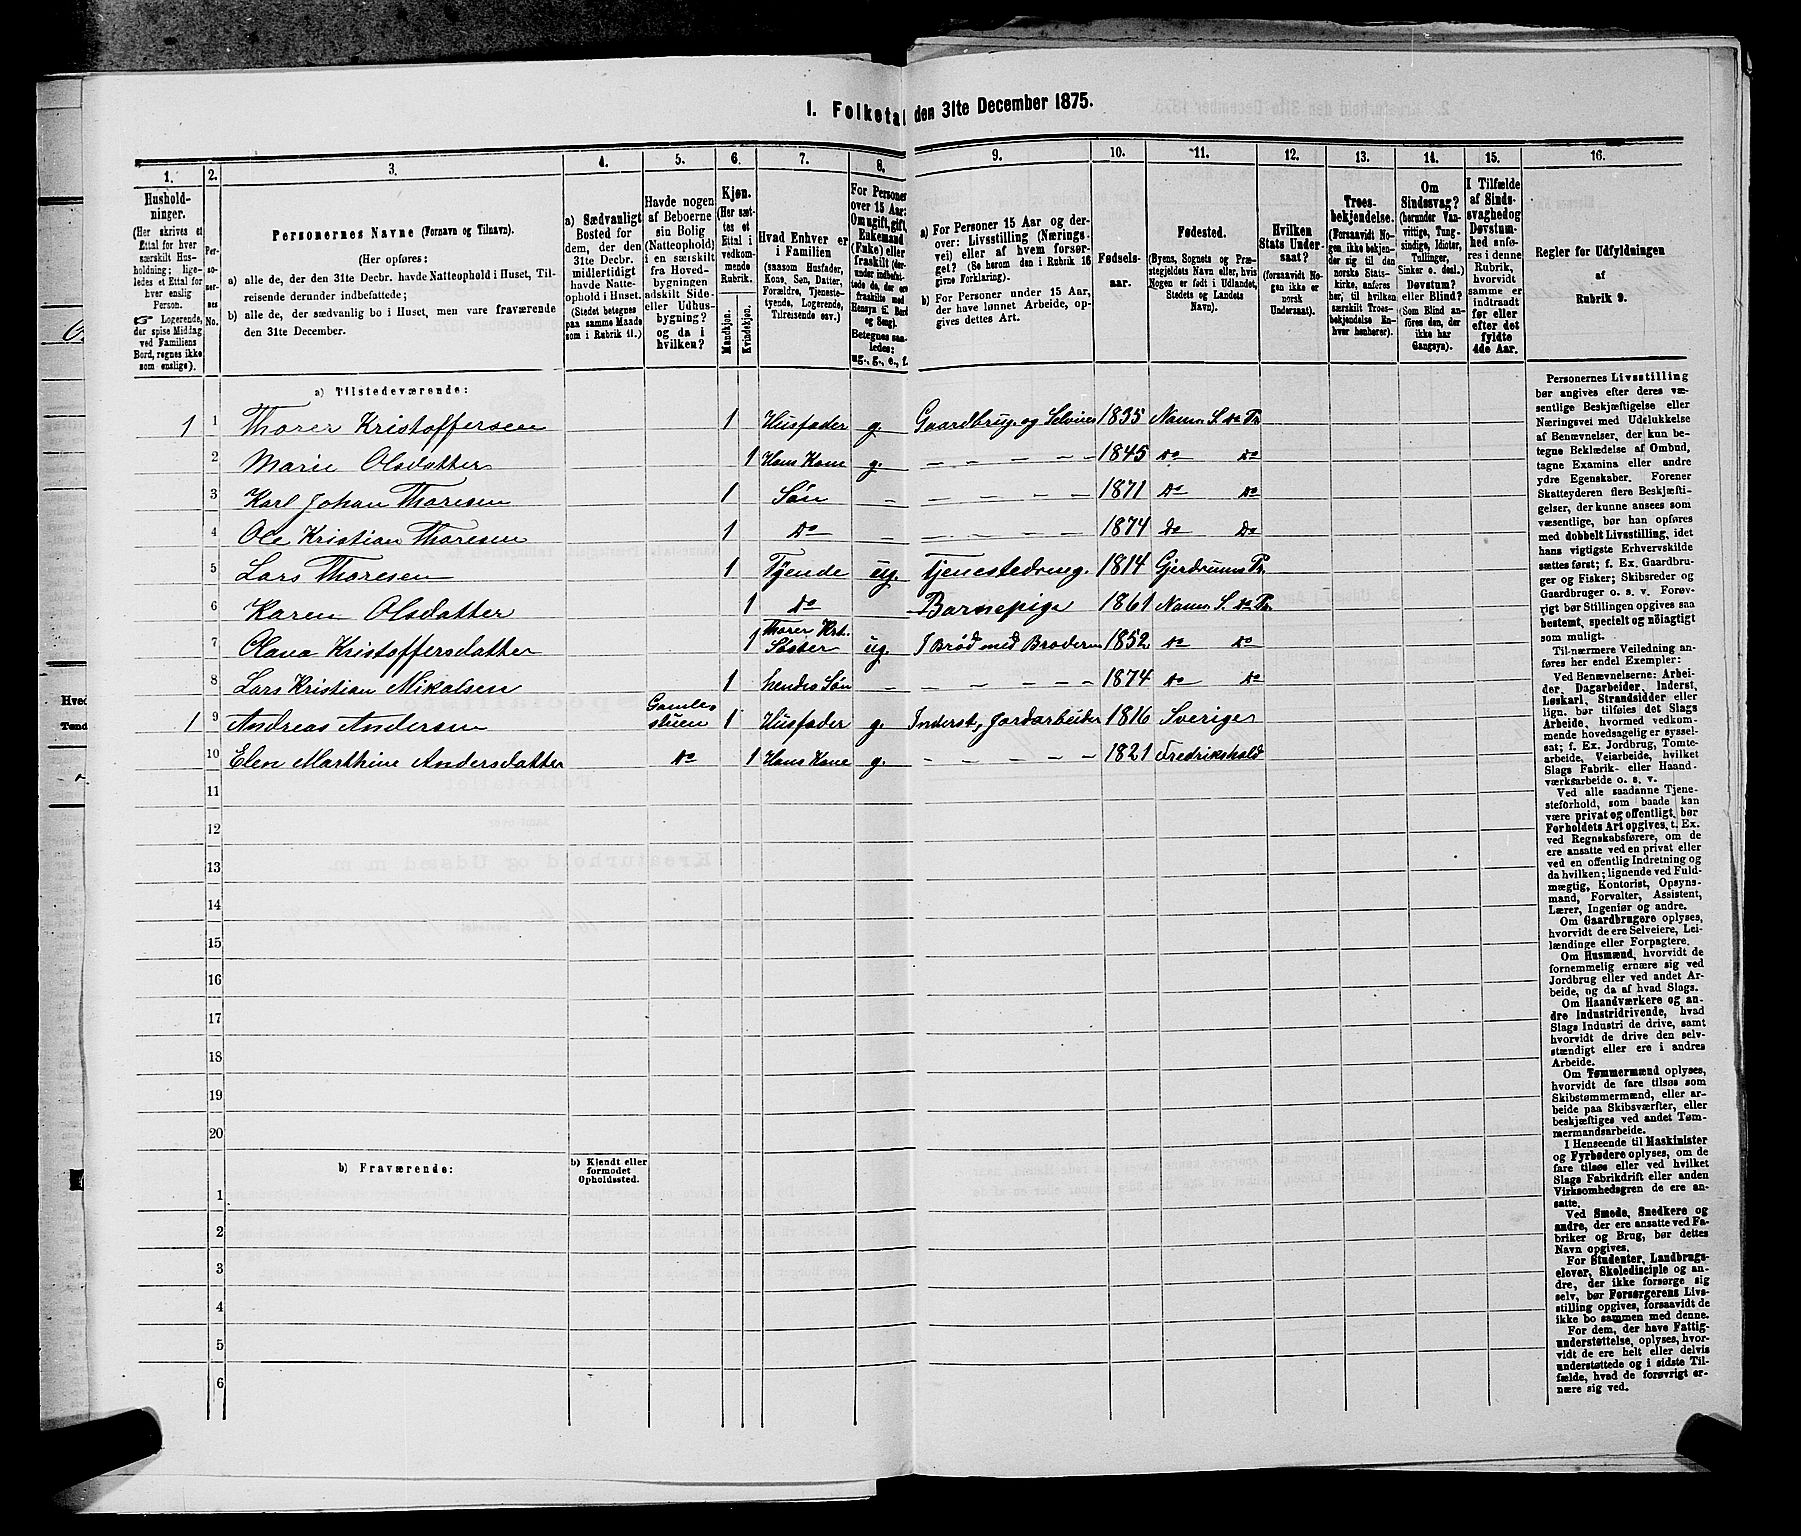 1. Folketal den 31te December 1875.
1.
2.
3.
4.
5.
6.
7.
8.
9.
10.
11.
12.
13.
14.
15.
16.
Hushold-
ninger.
(Her skrives et
Ettal for hver
særskilt Hus-
holdning; lige-
ledes et Ettal
for hver enslig
Person.
☞ Logerende,
der spise Middag
ved Familiens
Bord, regnes ikke
som enslige).
Per-
so-
ner-
nes
No.
Personernes Navne (Fornavn og Tilnavn).
(Her opføres:
a) alle de, der den 31te Decbr. havde Natteophold i Huset, Til-
reisende derunder indbefattede;
b) alle de, der sædvanlig bo i Huset, men vare fraværende
den 31te December.
a) Sædvanligt
Bosted for
dem, der den
31te Decbr.
midlertidigt
havde Natte-
ophold i Huset.
(Stedet betegnes
paa samme Maade
som i Rubrik 11.)
Havde nogen
af Beboerne
sin Bolig
(Natteophold)
i en særskilt
fra Hoved-
bygningen
adskilt Side-
eller Udhus-
bygning?
og da i
hvilken?
Kjøn.
(Her sæt-
tes et
Ettal i
vedkom-
mende
Rubrik.
Mandkjøn.
Kvindekjøn.
Hvad Enhver er
i Familien
(saasom Husfader,
Kone, Søn, Datter,
Forældre, Tjeneste-
tyende, Logerende,
Tilreisende osv.)
For Personer
over 15 Aar:
Om ugift, gift,
Enkemand
(Enke) eller
fraskilt (der-
under indbefat-
tede de, der ere
fraskilte med
Hensyn til Bord
og Seng).
Betegnes saa-
ledes:
ug., g., e., f.
a) For Personer 15 Aar og der-
over: Livsstilling (Nærings-
vei) eller af hvem forsør-
get? (Se herom den i Rubrik 16
givne Forklaring).
b) For Personer under 15 Aar,
der have lønnet Arbeide, op-
gives dettes Art.
Fødsels-
aar.
Fødested.
(Byens, Sognets og Præ-
stegjeldets Navn eller, hvis
Nogen er født i Udlandet,
Stedets og Landets
Navn).
Hvilken
Stats Under-
saat?
(forsaavidt No-
gen ikke er
norsk
Undersaat).
Troes-
bekjendelse.
(Forsaavidt No-
gen ikke bekjen-
der sig til den
norske Stats-
kirke, anføres
her, til hvilken
særskilt Troes-
bekjendelse En-
hver henhører).
Om
Sindssvag?
(herunder Van-
vittige, Tung-
sindige, Idioter,
Tullinger,
Sinker o. desl.)
Døvstum?
eller Blind?
(Som Blind an-
føres den, der
ikke har
Gangsyn).
I Tilfælde
af Sinds-
svaghed og
Døvstum-
hed anfø-
res i denne
Rubrik,
hvorvidt
samme er
indtraadt
før eller
efter det
fyldte
4de Aar.
Regler for Udfyldningen
af
Rubrik 9.
a) Tilstedeværende:
1 1 Thorer Kristoffersen 1 Husfader g. Gaardbrug. og Selveier 1835 Nann. S. do Pr.
2 Marie Olsdatter 1 Hans Kone g. – – – – – 1845 do do
3 Karl Johan Thoresen 1 Søn – – – – – 1871 do do
4 Ole Kristian Thoresen 1 do – – – – 1874 do do
5 Lars Thoresen 1 Tyende ug. Tjenestedreng. 1814 Gjerdrums Pr.
6 Karen Olsdatter 1 do Barnepige 1861 Nann. S. do Pr.
7 Olava Kristoffersdatter 1 Thorer Krt. Søster ug. I Brød med Broderen 1852 do do
8 Lars Kristian Mikalsen 1 hendes Søn – – – – – 1874 do do
1 9 Andreas Andersen Gamle-stuen 1 Husfader g. Inderst, Jordarbeider 1816 Sverige
10 Elen Marthine Andersdatter do 1 Hans Kone g. – – – – – 1821 Fredrikshald
11
12
13
14
15
16
17
18
19
20
b) Fraværende:
b) Kjendt eller
formodet
Opholdssted.
1
2
3
4
5
6
Personernes Livsstilling
bør angives efter deres væ-
sentlige Beskjæftigelse eller
Næringsvei med Udelukkelse
af Benævnelser, der kun be-
tegne Beklædelse af Ombud,
tagne Examina eller andre
ydre Egenskaber. Forener
Skatteyderen flere Beskjæfti-
gelser, der kunne ansees som
væsentlige, bør han opføres
med dobbelt Livsstilling, idet
hans vigtigste Erhvervskilde
sættes først; f. Ex. Gaardbru-
ger og Fisker; Skibsreder og
Gaardbruger o. s. v. Forøv-
rigt bør Stillingen opgives saa
bestemt, specielt og nöiagtigt
som muligt.
Til nærmere Veiledning an-
føres her endel Exempler:
Ved Benævnelserne: Arbei-
der, Dagarbeider, Inderst,
Løskarl, Strandsidder eller
lign. bør tilføies det Slags
Arbeide, hvormed vedkom-
mende hovedsagelig er syssel-
sat; f. Ex. Jordbrug, Tomte-
arbeide, Veiarbeide, hvilket
Slags Fabrik- eller Haand-
værksarbeide o. s. v.
Ved alle saadanne Tjene-
steforhold, som baade kan
være privat og offentligt, bør
Forholdets Art opgives, t. Ex.
ved Regnskabsførere, om de
ere ansatte ved en privat eller
ved en offentlig Indretning og
da hvilken; lignende ved Fuld-
mægtig, Kontorist, Opsyns-
mand, Forvalter, Assistent,
Lærer, Ingeniør og andre.
Om Gaardbrugere oplyses,
hvorvidt de ere Selveiere, Lei-
lændinge eller Forpagtere.
Om Husmænd, hvorvidt de
fornemmelig ernære sig ved
Jordbrug eller ved andet Ar-
beide, og da af hvad Slags.
Om Haandværkere og an-
dre Industridrivende, hvad
Slags Industri de drive, samt
hvorvidt de drive den selv-
stændigt eller ere i andres
Arbeide.
Om Tømmermænd oplyses,
hvorvidt de fare tilsøs som
Skibstømmermænd, eller ar-
beide paa Skibsværfter, eller
beskjæftiges ved andet Tøm-
mermandsarbeide.
I Henseende til Maskinister
og Fyrbødere oplyses, om de
fare tilsøs eller ved hvilket
Slags Fabrikdrift eller anden
Virksomhedsgren de ere an-
satte.
Ved Smede, Snedkere og
andre, der ere ansatte ved Fa-
briker og Brug, bør dettes
Navn opgives.
For Studenter, Landbrugs-
elever, Skoledisciple og an-
dre, der ikke forsørge sig
selv, bør Forsørgerens Livs-
stilling opgives, forsaavidt de
ikke bo sammen med denne.
For dem, der have Fattig-
understøttelse, oplyses, hvor-
vidt de ere helt eller delvis
understøttede og i sidste Til-
fælde, hvad de forøvrigt er-
nære sig ved.